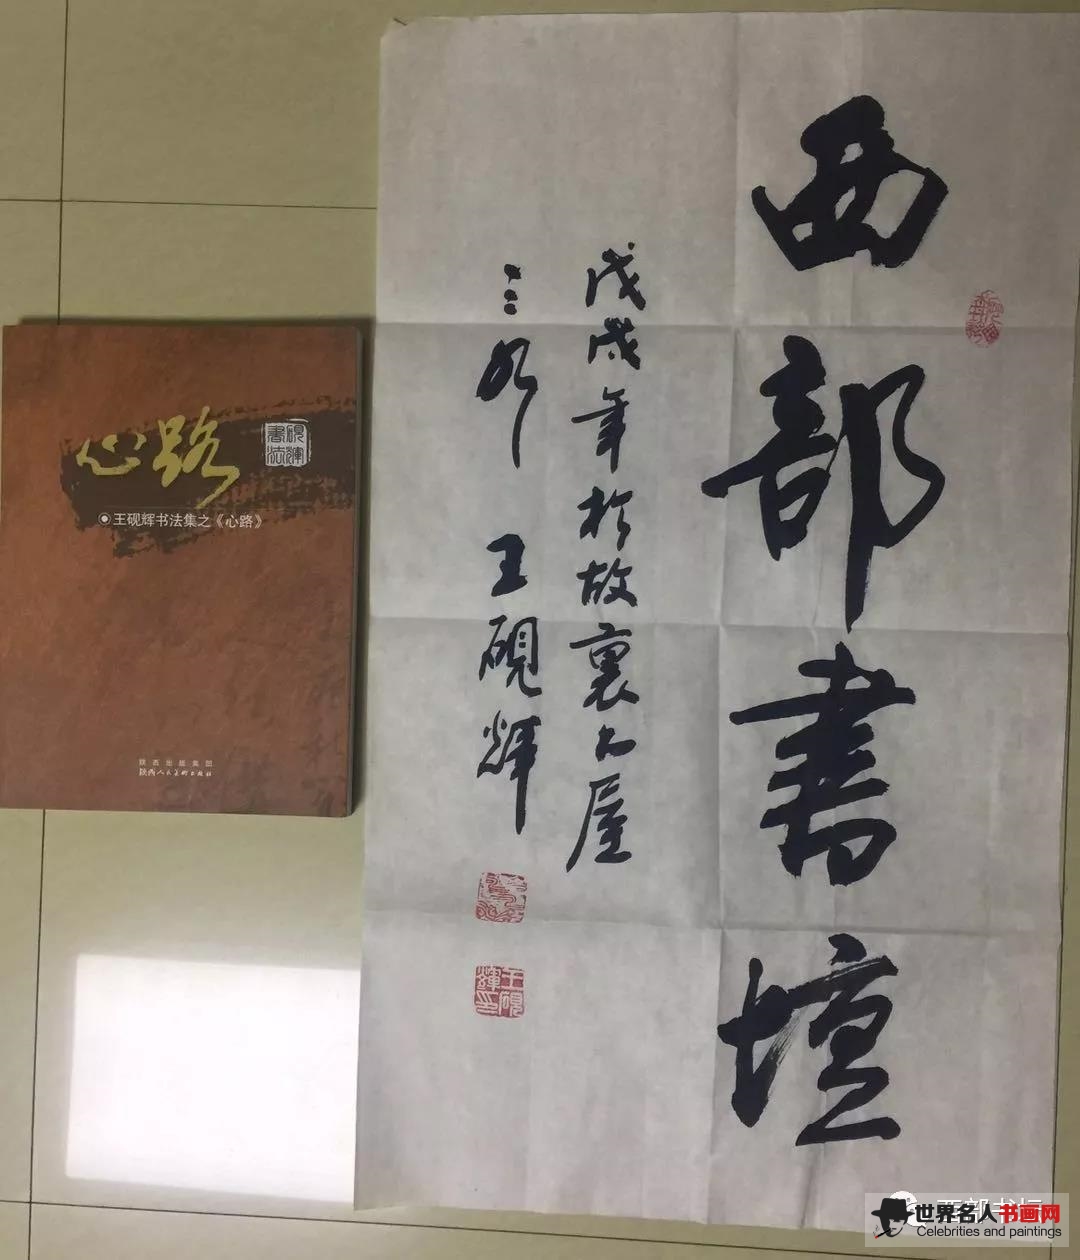 西部書壇
戊戌年於故裏老屋
三郎 王砚輝
王砚輝印
心路
砚輝書法
◉王砚辉书法集之《心路》
陕西出版集团
陕西人民美术出版社
西部书坛
世界名人书画网
Celebrities and paintings